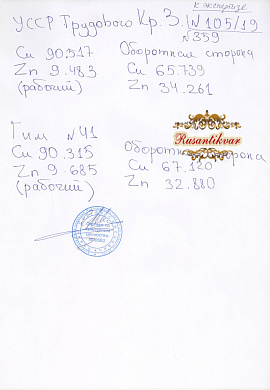 к экспертизе
УССР Трудового Кр. З. N105/19
N359
Cu 90.517
Zn 9.483
(рабочий)
Оборотная сторона
Cu 65.739
Zn 34.261
Гим N41
Cu 90.315
Zn 9.685
(рабочий)
Оборотная сторона
Cu 67.120
Zn 32.880
Rusantikvar